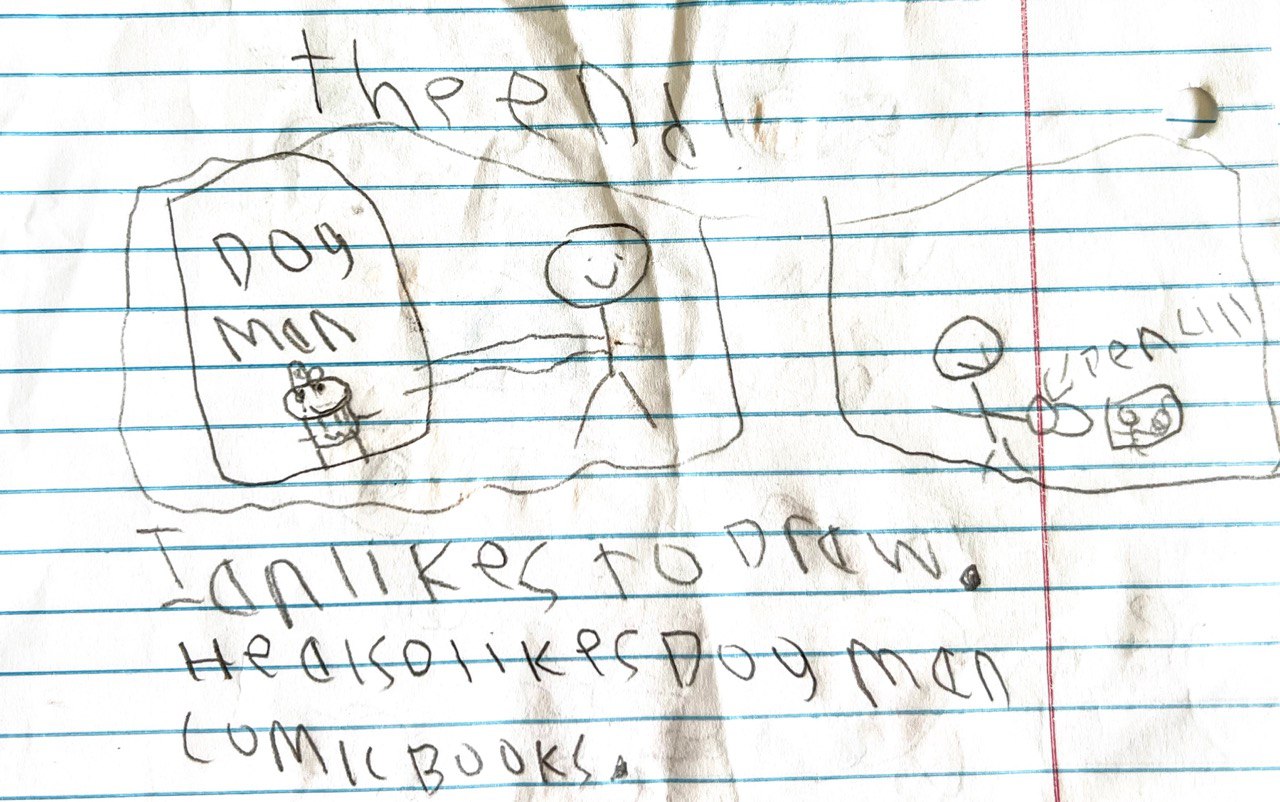 the end.
DOG
MAN
PEN
Ian likes to Draw.
He also likes Dog Man
COMIC BOOKS.